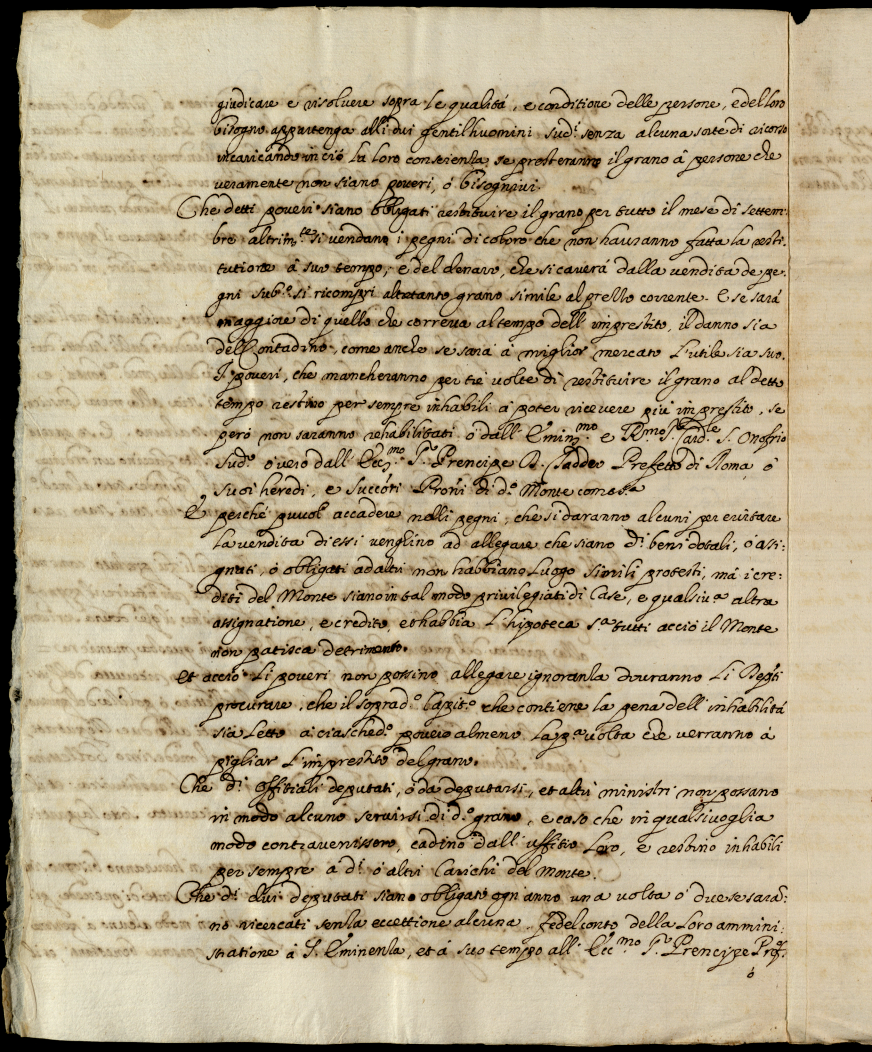 giudicare e risolvere sopra le qualitá, e conditione delle persone, e del loro
bisogno appartenga alli dui gentilhuomini sud.i senza alcuna sorte di ricorso
incaricando in ció la loro conscienza, se presteranno il grano á persone che
veramente non siano poveri, ó bisognosi.
Che detti poveri siano obligati restituire il grano per tutto il mese di settem:
bre altrim.te si vendano i pegni di coloro che non havranno fatta la resti:
tutione á suo tempo, e del denaro, che si caverá dalla vendita de pe:
gni sub.o si ricompri altretanto grano simile al prezzo corrente. E se sará
maggiore di quello che correva al tempo dell'imprestito, il danno sia
del Contadino, come anche se sará á miglior mercato l'utile sia suo.
I poveri, che mancheranno per tré volte di restituire il grano al detto
tempo restino per sempre inhabili á poter ricevere piú imprestito, se
peró non saranno rehabilitati ó dall'Emin.mo e R.mo S.r Card.le S. Onofrio
sud.o ó vero dall'Ecc.mo S.r Prencipe D. Taddeo Prefetto di Roma, ó
suoi heredi, e succ.ri Pr.oni di d.o Monte come s.a
E perché puvol accadere nelli pegni, che si daranno alcuni per evitare
la vendita di essi venghino ad allegare che siano d.i beni dotali, ó assi:
gnati, ó obligati ad altri non habbiano luogo simili protesti, má i cre:
diti del Monte siano in tal modo privilegiati di Case, e qualsiv.a altra
assignatione, e credito, et habbia l'hipoteca s.a tutti acció il Monte
non patisca detrimento.
Et acció li poveri non possino allegare ignoranza dovranno li Dep.ti
procurare, che il soprad.o Capit.o che contiene la pena dell'inhabilitá
sia letto á ciasched.o povero almeno la p.a volta che verranno á
pigliar l'imprestito del grano.
Che d.i offitiali deputati, ó da deputarsi, et altri ministri non possano
in modo alcuno servirsi di d.o grano, e caso che in qualsivoglia
modo contravenissero, cadino dall'uffitio loro, e restino inhabili
per sempre á d.i ó altri Carichi del Monte.
Che d.i dui deputati siano obligati ogn'anno una volta ó due se saran:
no ricercati senza eccettione alcuna, del conto della loro ammini:
stratione á S. Eminenza, et á suo tempo all'Ecc.mo S.r Prencipe Pref.
ó